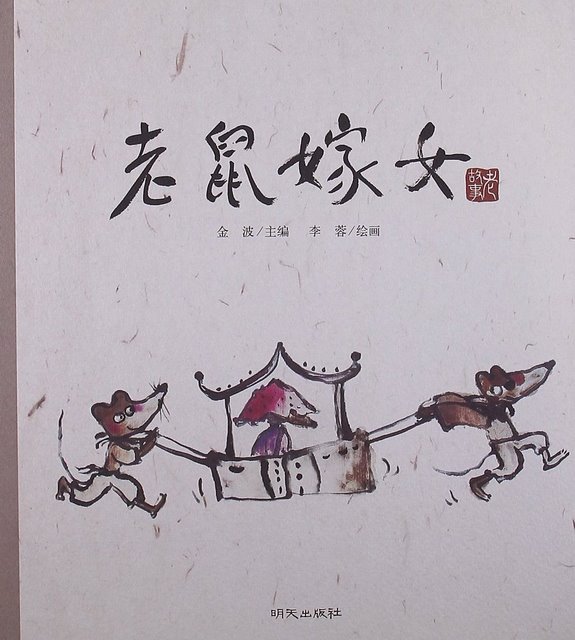 老鼠嫁女
老故事
金 波/主编 李 蓉/绘画
明天出版社